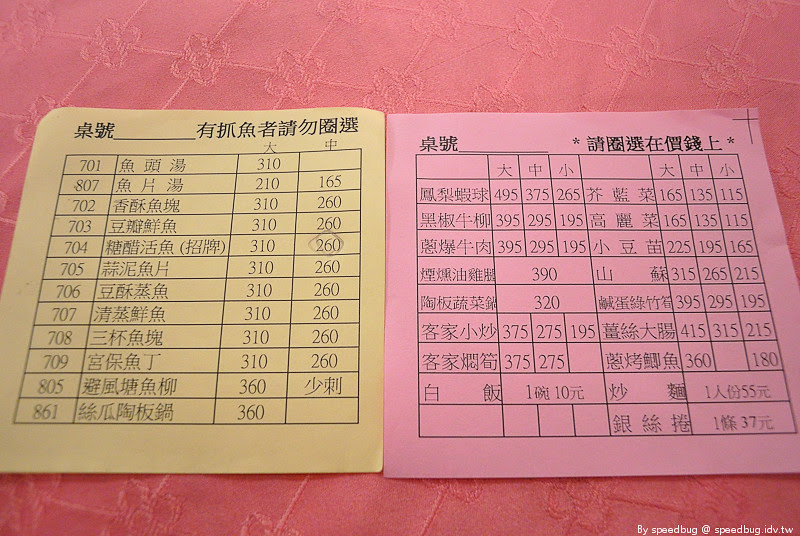 桌號________有抓魚者請勿圈選
大 中
701 魚頭湯 310
807 魚片湯 210 165
702 香酥魚塊 310 260
703 豆瓣鮮魚 310 260
704 糖醋活魚(招牌) 310 260
705 蒜泥魚片 310 260
706 豆酥蒸魚 310 260
707 清蒸鮮魚 310 260
708 三杯魚塊 310 260
709 宮保魚丁 310 260
805 避風塘魚柳 360 少刺
861 絲瓜陶板鍋 360
桌號________ *請圈選在價錢上*
大 中 小 大 中 小
鳳梨蝦球 495 375 265 芥藍菜 165 135 115
黑椒牛柳 395 295 195 高麗菜 165 135 115
蔥爆牛肉 395 295 195 小豆苗 225 195 165
煙燻油雞腿 390 山蘇 315 265 215
陶板蔬菜鍋 320 鹹蛋綠竹筍 395 295 195
客家小炒 375 275 195 薑絲大腸 415 315 215
客家燜筍 375 275 蔥烤鯽魚 360 180
白飯 1碗 10元 炒麵 1人份55元
銀絲捲 1條 37元
By speedbug @ speedbug.idv.tw